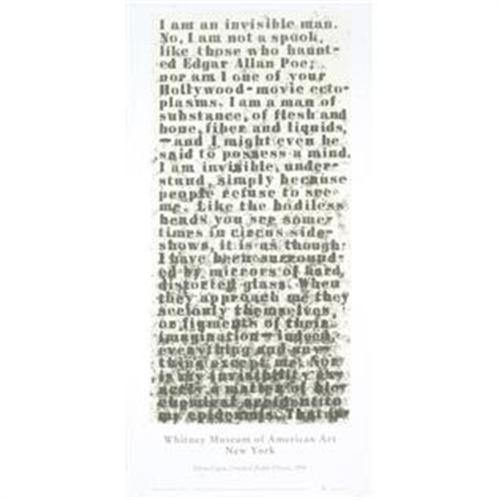 I am an invisible man.
No, I am not a spook,
like those who haunt-
ed Edgar Allan Poe;
nor am I one of your
Hollywood-movie ecto-
plasms. I am a man of
substance, of flesh and
bone, fiber and liquids,
—and I might even be
said to possess a mind.
I am invisible, under-
stand, simply because
people refuse to see
me. Like the bodiless
heads you see some-
times in circus side-
shows, it is as though
I have been surround-
ed by mirrors of hard,
distorted glass. When
they approach me they
see only themselves,
or figments of their
imagination—indeed,
everything and any-
thing except me. Nor
is my invisibility ex-
actly a matter of bio-
chemical accident to
my epidermis. That in-
Whitney Museum of American Art
New York